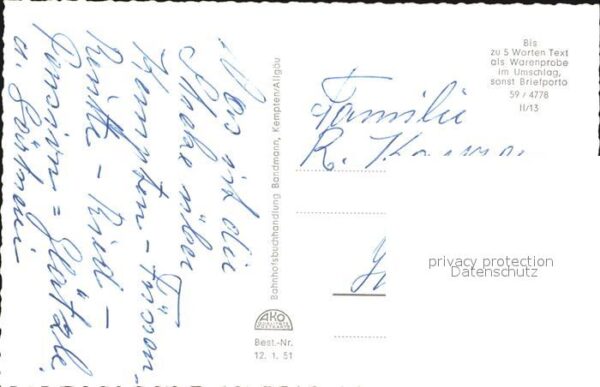 Das ist die
Strecke über
Kempten - Füssen
Reutte - Ried -
Pension =
u.
Bahnhofsbuchhandlung Bandmann, Kempten/Allgäu
AKO
Best.-Nr.
12. 1. 51
Bis
zu 5 Worten Text
als Warenprobe
im Umschlag,
sonst Briefporto
59 / 4778
II/13
Familie
R.
privacy protection
Datenschutz